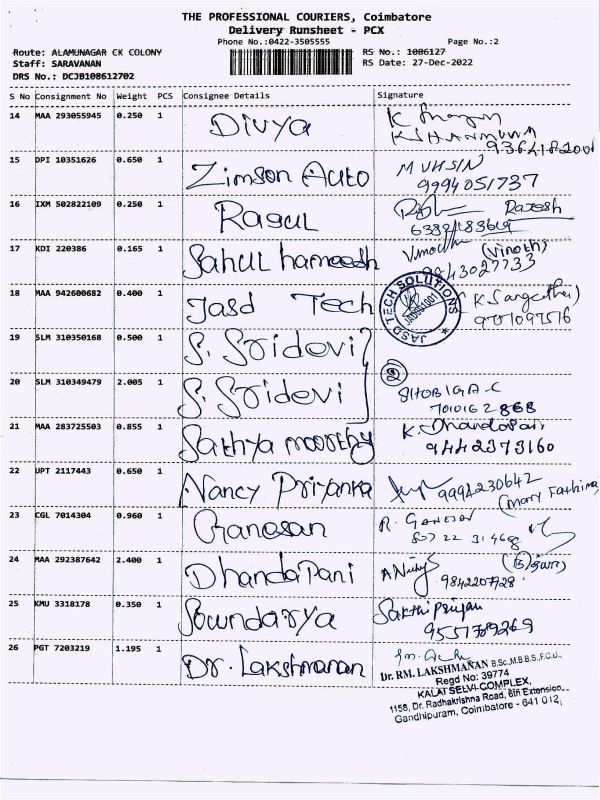 THE PROFESSIONAL COURIERS, Coimbatore
Delivery Runsheet - PCX
Phone No.:0422-3505555 Page No.:2
Route: ALAMUNAGAR CK COLONY RS No.: 1086127
Staff: SARAVANAN RS Date: 27-Dec-2022
DRS No.: DCJB108612702
S No Consignment No Weight PCS Consignee Details Signature
14 MAA 293055945 0.250 1 Divya K
KSHANMUGA
15 DPI 10351626 0.650 1 Zimson Auto MUHSIN
9994051737
16 IXM 502822109 0.250 1 Ragul Rajesh
17 KDI 220386 0.165 1 Sahul hameedh (Vinoth)
9943027733
18 MAA 942600682 0.400 1 Jasd Tech JASD TECH SOLUTIONS
19 SLM 310350168 0.500 1 S. Sridevi
20 SLM 310349479 2.005 1 S. Sridevi 2
SHOBIGA-C
7010162868
21 MAA 283725503 0.855 1 Sathya moorthy K. Dhandapani
9442373160
22 UPT 2117443 0.650 1 Nancy Priyanka 9994230642
(Mary Fathima)
23 CGL 7014304 0.960 1 Ganesan R. GANESAN
24 MAA 292387642 2.400 1 DhandaPani
9842207928
25 KMU 3318178 0.350 1 Soundarya Sakthi priyan
9551789269
26 PGT 7203219 1.195 1 Dr. Lakshmanan
Dr. RM. LAKSHMANAN B.Sc.,M.B.B.S.,F.C.G.
Regd No: 39774
KALAI SELVI COMPLEX,
1158, Dr. Radhakrishna Road, 6th Extension,
Gandhipuram, Coimbatore - 641 012,